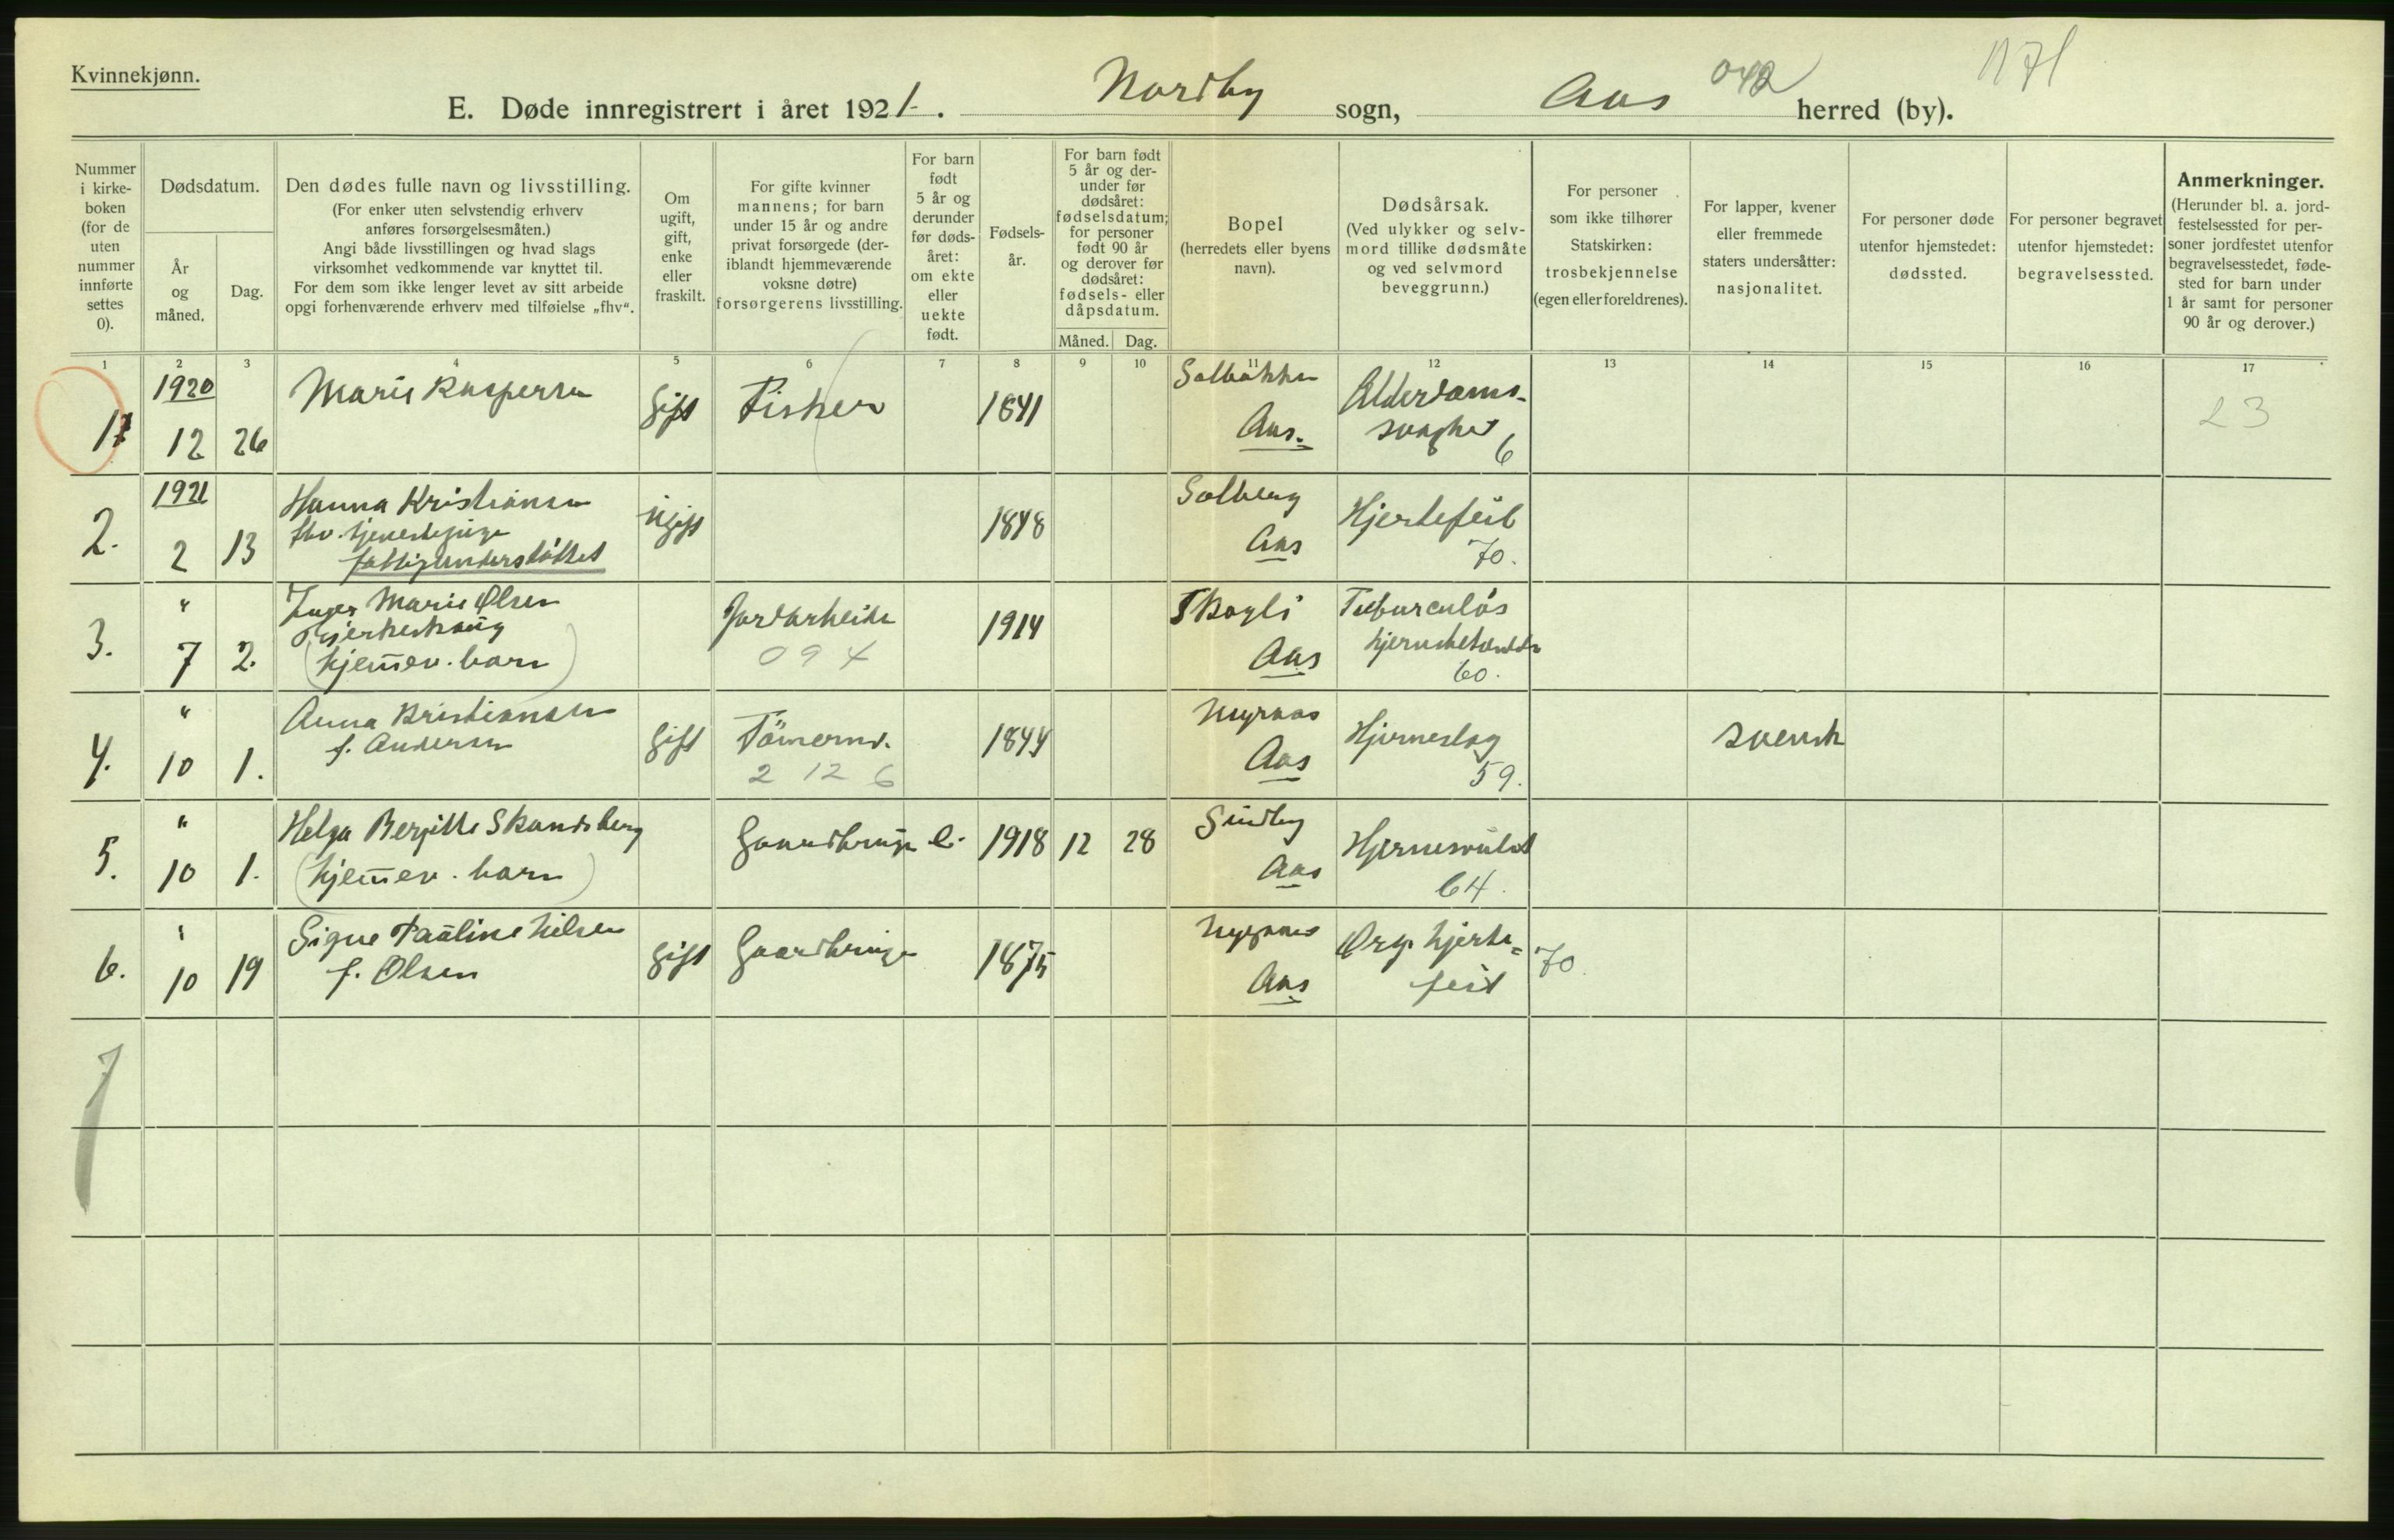 Kvinnekjønn.
E. Døde innregistrert i året 1921. Nordby sogn, Aas 042 herred (by).
Nummer i kirke-boken (for de uten nummer innførte settes 0).
Dødsdatum.
År og måned.
Dag.
Den dødes fulle navn og livsstilling.
(For enker uten selvstendig erhverv
anføres forsørgelsesmåten.)
Angi både livsstillingen og hvad slags
virksomhet vedkommende var knyttet til.
For dem som ikke lenger levet av sitt arbeide
opgi forhenværende erhverv med tilføielse „fhv“.
Om
ugift,
gift,
enke
eller
fraskilt.
For gifte kvinner
mannens; for barn
under 15 år og andre
privat forsørgede (der-
iblandt hjemmeværende
voksne døtre)
forsørgerens livsstilling.
For barn
født
5 år og
derunder
før døds-
året:
om ekte
eller
uekte
født.
Fødsels-
år.
For barn født
5 år og der-
under før
dødsåret:
fødselsdatum;
for personer
født 90 år
og derover før
dødsåret:
fødsels- eller
dåpsdatum.
Måned. Dag.
Bopel
(herredets eller byens
navn).
Dødsårsak.
(Ved ulykker og selv-
mord tillike dødsmåte
og ved selvmord
beveggrunn.)
For personer
som ikke tilhører
Statskirken:
trosbekjennelse
(egen eller foreldrenes).
For lapper, kvener
eller fremmede
staters undersåtter:
nasjonalitet.
For personer døde
utenfor hjemstedet:
dødssted.
For personer begravet
utenfor hjemstedet:
begravelsessted.
Anmerkninger.
(Herunder bl. a. jord-
festelsessted for per-
soner jordfestet utenfor
begravelsesstedet, føde-
sted for barn under
1 år samt for personer
90 år og derover.)
1 2 3 4 5 6 7 8 9 10 11 12 13 14 15 16 17
1920
12 26
Marie Kaspersen
Gift
Fisker
1841
Solbakken
Aas.
Alderdoms-
svaghet
6
23
2.
1921
2 13
Hanna Kristiansen
fhv. tjenestepige
fattigunderstøttet
ugift
1848
Solberg
Aas
Hjertefeil
70.
3.
"
7 2.
Inger Marie Olsen
(hjemmev. barn)
Jordarbeider
094
1914
Skogli
Aas
Tuburculøs
60.
4.
"
10 1.
Anna Kristiansen
f. Andersen
gift
Tømmerm.
2 12 6
1844
Myrnas
Aas
Hjerneslag
59.
svensk
5.
"
10 1.
Helga Bergitte Skandsberg
(hjemmev. barn)
Gaardbruger
e.
1918 12 28
Aas
64.
6.
"
10 19
Signe Pauline Nilsen
f. Olsen
gift
Gaardbruger
1875
Aas
Org. hjerte=
feil
70.
7